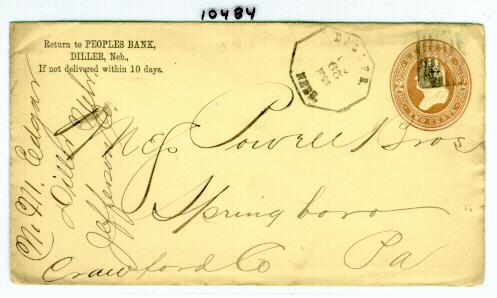 10484
Return to PEOPLES BANK,
DILLER, Neb.,
If not delivered within 10 days.
DILLER,
NEBR.
TWO CENTS
Mess Powell Bros
Springboro
Crawford Co Pa
N. M. Edgar
Diller Nebr.
Jefferson Co.